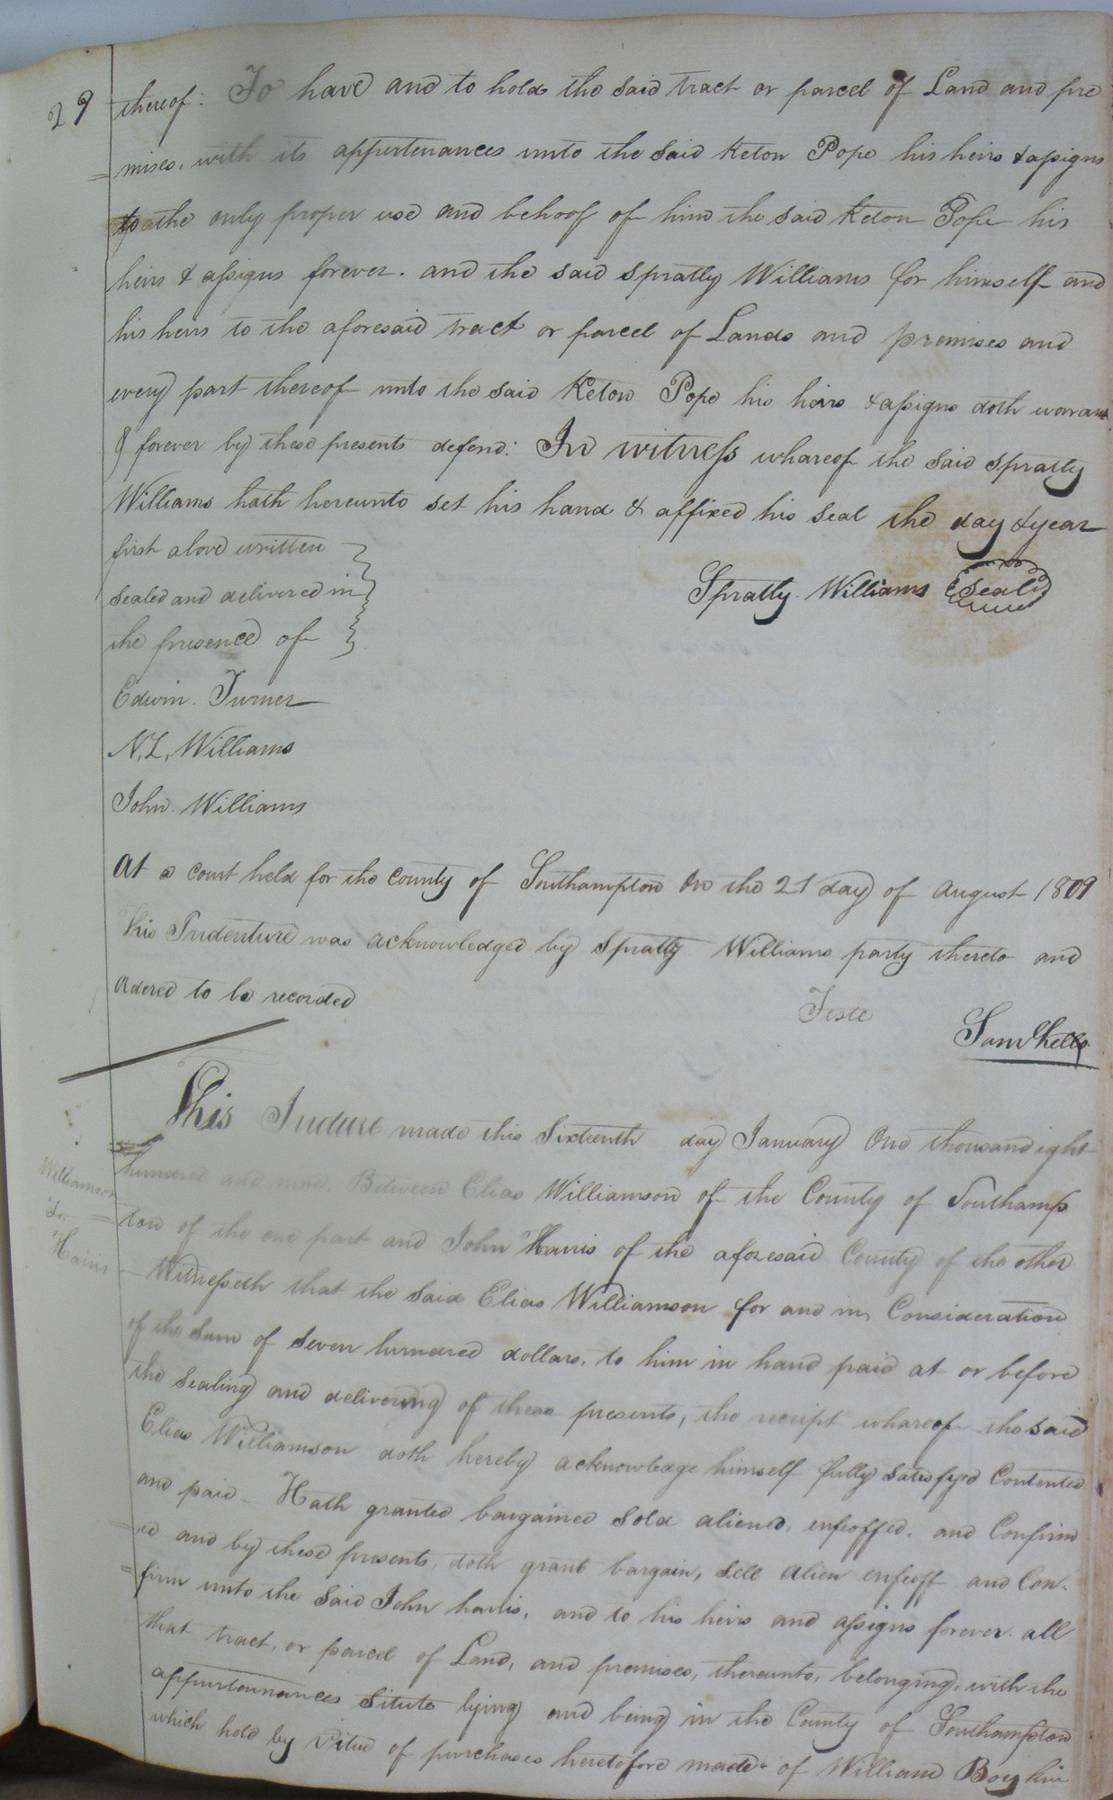 29
thereof: To have and to hold the said tract or parcel of Land and pre
=mises, with its appurtenances unto the said Keton Pope his heirs & assigns
to the only proper use and behoof of him the said Keton Pope his
heirs & assigns forever. and the said Spratly Williams for himself and
his heirs to the aforesaid tract or parcel of Lands and premises and
every part thereof unto the said Keton Pope his heirs & assigns doth warrant
& forever by these presents defend: In witness whareof the said Spratly
Williams hath hereunto set his hand & affixed his seal the day & year
first above written
Sealed and delivered in
the presence of
Spratly Williams Seal
Edwin Turner
N. L. Williams
John Williams
At a court held for the County of Southampton On the 21 day of August 1809
This Indenture was acknowledged by Spratly Williams party thereto and
Ordered to be recorded
Teste
Saml Kello
This Indure made this Sixteenth day January One thousand eight
hundred and nine. Between Elias Williamson of the County of Southamp
=ton of the one part and John Harris of the aforesaid County of the other
Williamson
To
Harris
Witnesseth that the said Elias Williamson for and in Consideration
of the Sum of Seven hundred dollars, to him in hand paid at or before
the Sealing and delivering of these presents, the receipt whareof the said
Elias Williamson doth hereby acknowledge himself fully Satisfyed Contented
and paid - Hath granted bargained Sold aliened, enfeoffed, and Confirm
=ed and by these presents, doth grant bargain, Sell Alien enfeoff and Con-
=firm unto the Said John harris, and to his heirs and assigns forever. all
that tract, or parcel of Land, and premises, thereunto, belonging, with the
appurtenances Situte lying and being in the County of Southampton
which hold by Vitue of purchases heretofore made of William Boykin